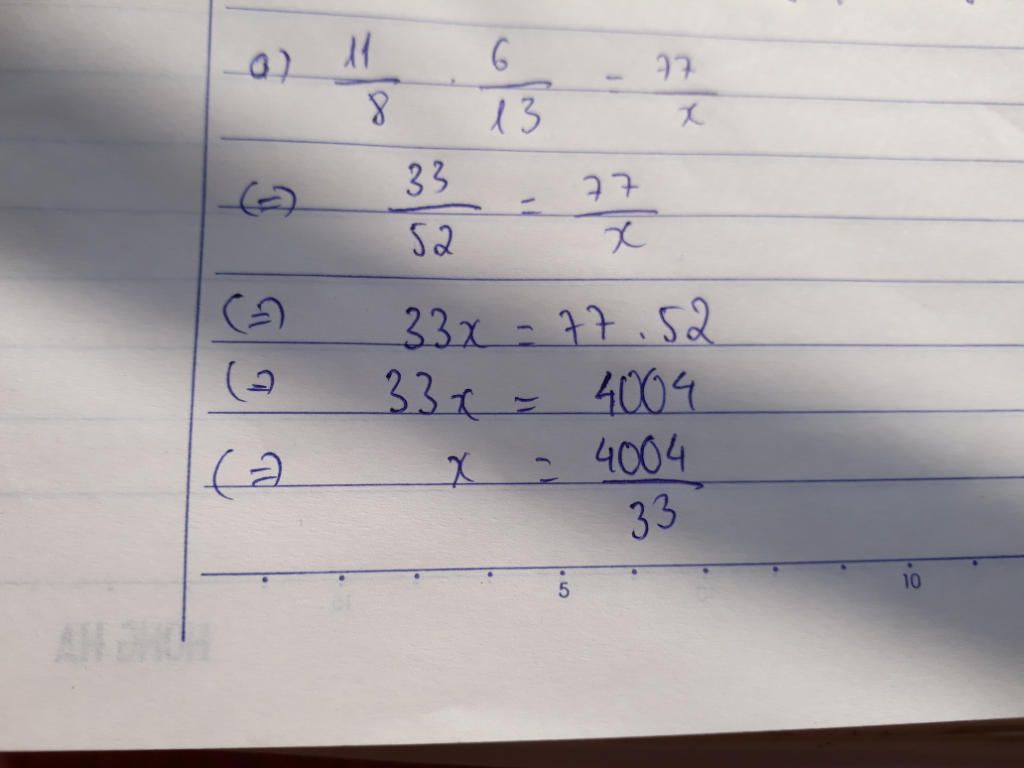 a) 11/8 . 6/13 = 77/x
(=) 33/52 = 77/x
(=) 33x = 77.52
(=) 33x = 4004
(=) x = 4004/33
5 10
HONG HA